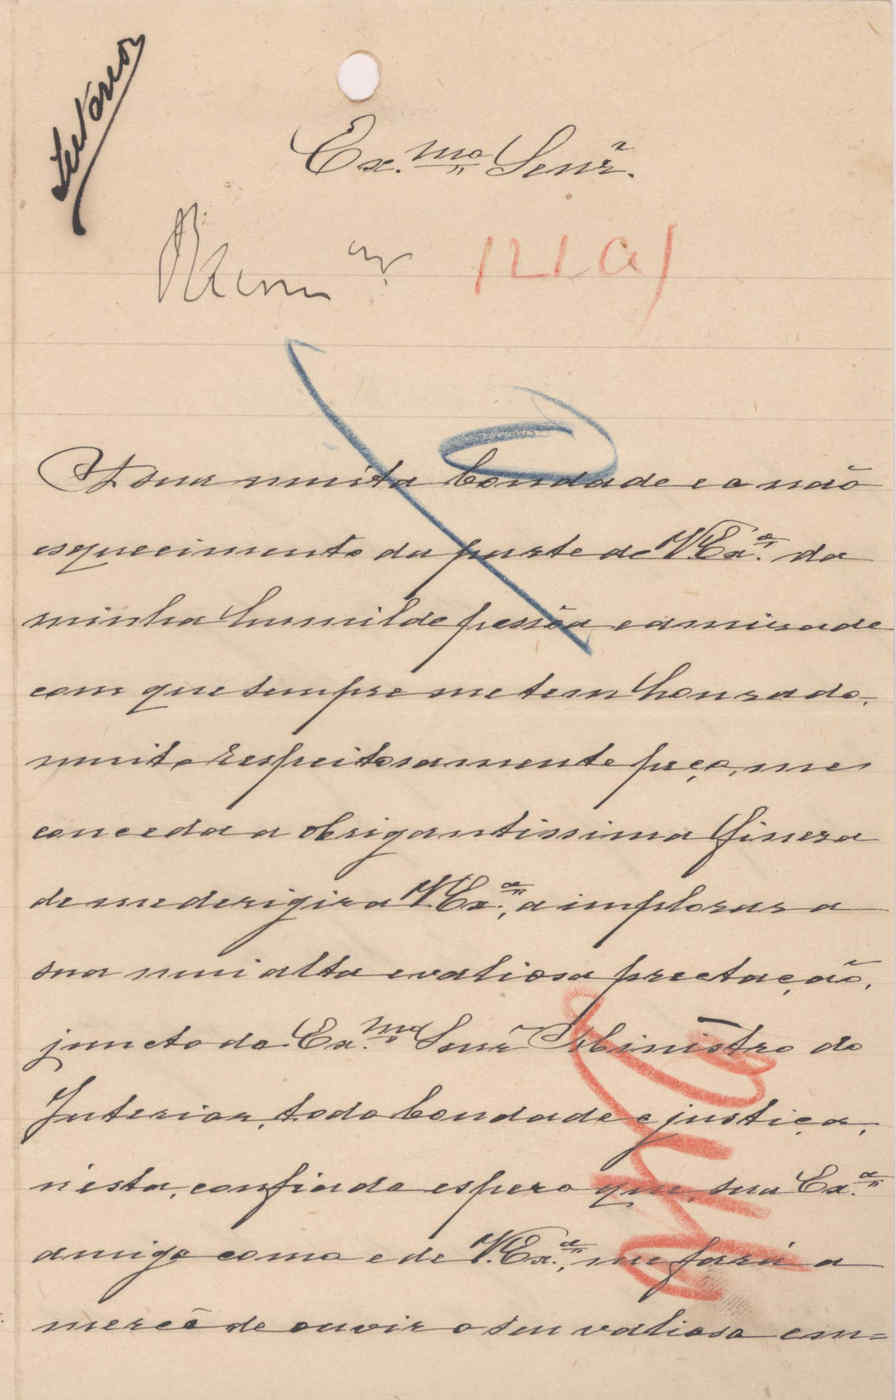 Ex.mo Senr.
A sua muita bondade e o não
esquecimento da parte de V. Ex.a da
minha humilde pessôa e amisade
com que sempre me tem honrado,
muito respeitosamente peço, me
conceda a obrigantissima finesa
de me derigir a V. Ex.a, a implorar a
sua mui alta e valiosa prectação,
juncto do Ex.mo Senr Ministro do
Interior, todo bondade e justiça,
n'esta, confiado espero que, sua Ex.a
amigo como e de V. Ex.a, me fará a
mercê de ouvir o seu valioso em=